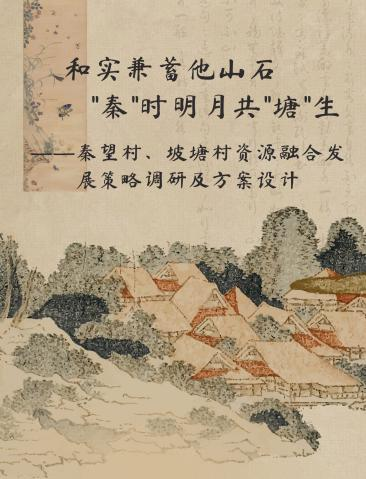 和实兼蓄他山石
"秦"时明月共"塘"生
——秦望村、坡塘村资源融合发
展策略调研及方案设计